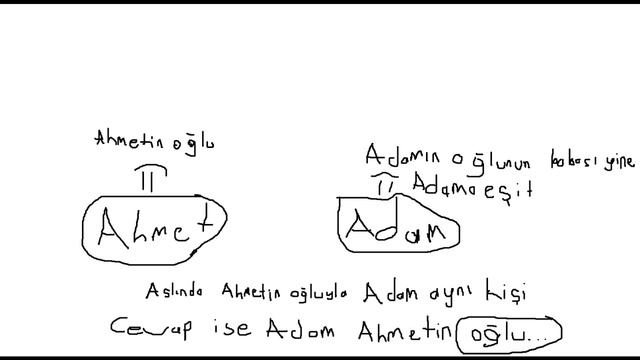 Ahmetin oğlu
Adamın oğlunun babası yine
Adama eşit
Ahmet
Adam
Aslında Ahmetin oğluyla Adam aynı kişi
Cevap ise Adam Ahmetin oğlu...